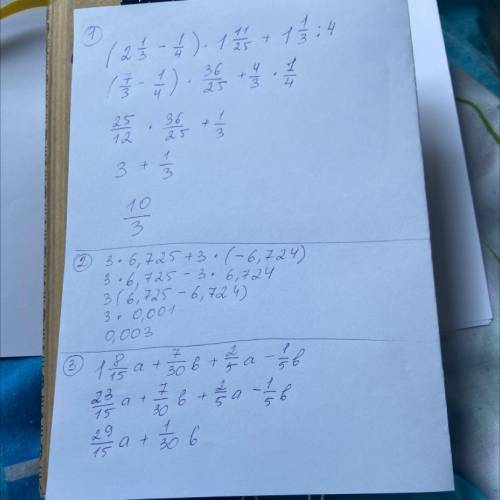 1) (2 1/3 - 1/4) · 1 11/25 + 1 1/3 : 4
(7/3 - 1/4) · 36/25 + 4/3 · 1/4
25/12 · 36/25 + 1/3
3 + 1/3
10/3
2) 3 · 6,725 + 3 · (-6,724)
3 · 6,725 - 3 · 6,724
3(6,725 - 6,724)
3 · 0,001
0,003
3) 1 8/15 a + 7/30 b + 2/5 a - 1/5 b
23/15 a + 7/30 b + 2/5 a - 1/5 b
29/15 a + 1/30 b